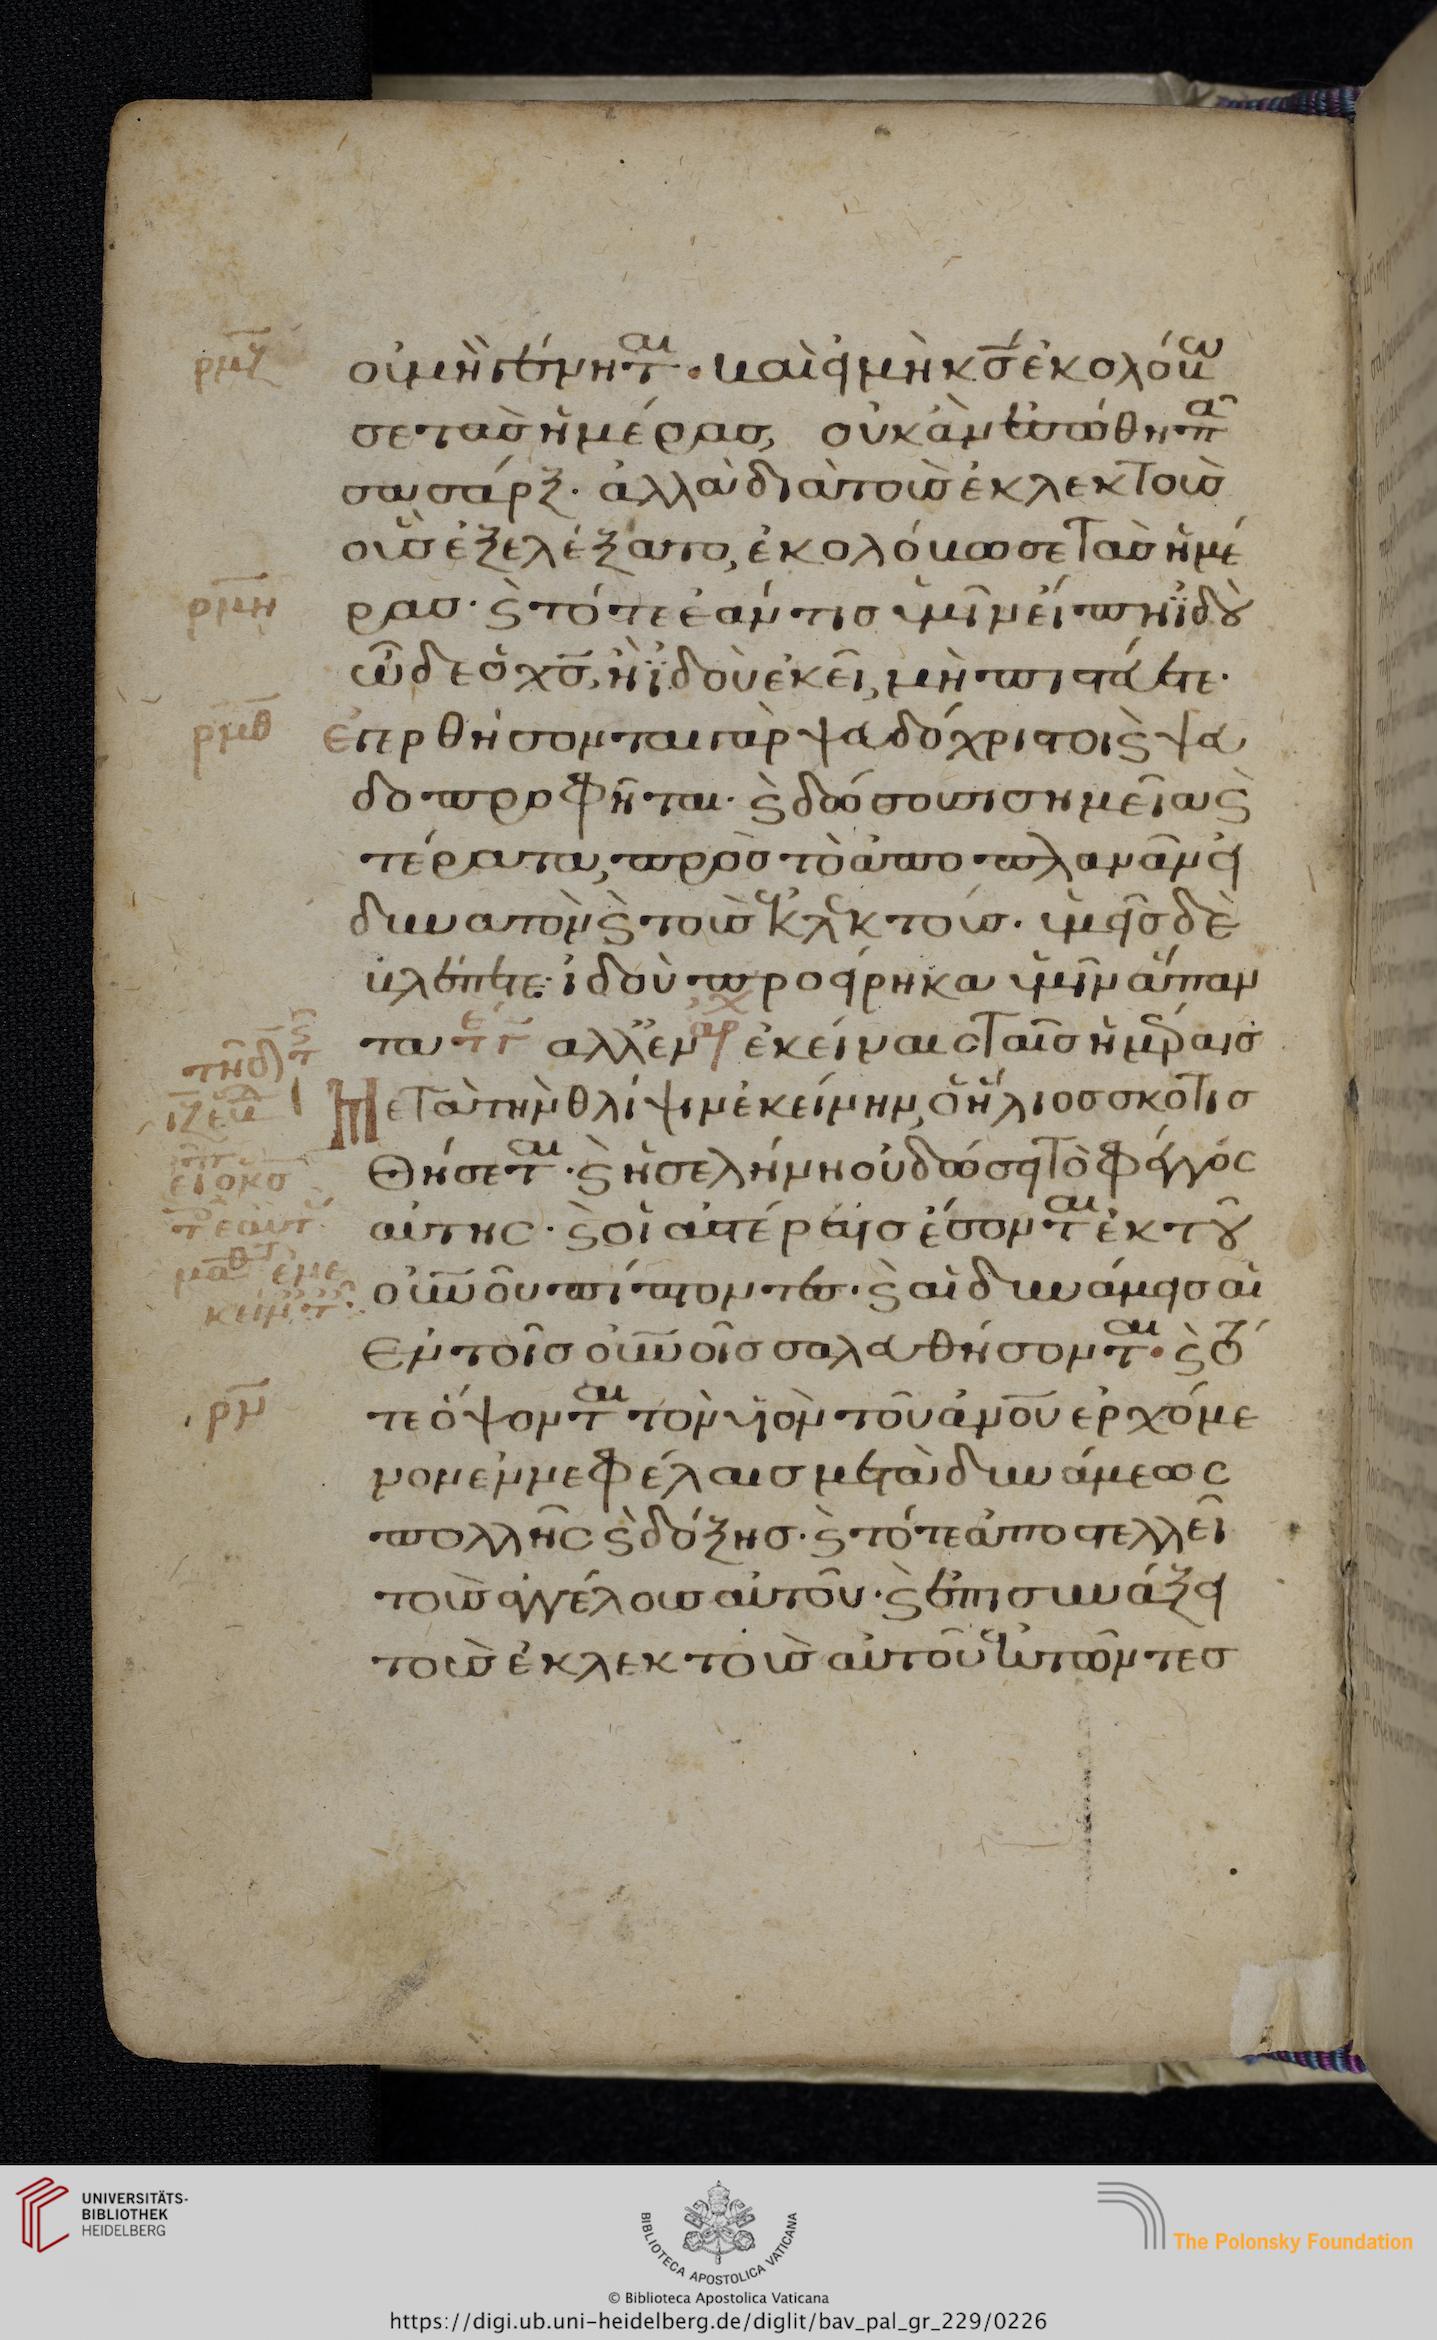 ρμζ
οὐ μὴ γένητ αι · καὶ εἰ μὴ κς ἐκολόβω
σε τὰς ἡμέρας, οὐκ ἂν ἐσώθη πᾶ
σα σάρξ · ἀλλὰ διὰ τοὺς ἐκλεκτοὺς
οὓς ἐξελέξατο, ἐκολόβωσε τὰς ἡμέ
ρμη
ρας · ϗ τότε ἐάν τις ὑμῖν εἴπη ἰδοὺ
ὧδε ὁ χς, ἢ ἰδοὺ ἐκεῖ, μὴ πιστεύετε ·
ρμθ
ἐγερθήσονται γὰρ ψευδόχριστοι ϗ ψευ
δοπροφῆται · ϗ δώσουσι σημεῖα ϗ
τέρατα, πρὸς τὸ ἀποπλανᾶν εἰ
δυνατὸν ϗ τοὺς ἐκλεκτούς · ὑμεῖς δὲ
βλέπετε · ἰδοὺ προείρηκα ὑμῖν ἅπαν
τα τέ ἀλλ' ἐν ἀρχ ἐκείναις ταῖς ἡμέραις
Μετὰ τὴν θλίψιν ἐκείνην, ὁ ἥλιος σκοτισ
θήσεται · ϗ ἡ σελήνη οὐ δώσει τὸ φέγγος
αὐτης · ϗ οἱ ἀστέρες ἔσονται ἐκ τοῦ
οὐνοῦ πίπτοντες · ϗ αἱ δυνάμεις αἱ
ἐν τοῖς οὐνοῖς σαλευθήσονται · ϗ τό
ρν
τε ὄψονται τὸν υἱὸν τοῦ ἀνου ἐρχόμε
νον ἐν νεφέλαις μετὰ δυνάμεως
πολλῆς ϗ δόξης · ϗ τότε ἀποστελλεῖ
τοὺς ἀγγέλους αὐτοῦ · ϗ ἐπισυνάξει
τοὺς ἐκλεκτοὺς αὐτοῦ ἐκ τῶν τεσ
UNIVERSITÄTS-
BIBLIOTHEK
HEIDELBERG
BIBLIOTECA APOSTOLICA VATICANA
The Polonsky Foundation
© Biblioteca Apostolica Vaticana
https://digi.ub.uni-heidelberg.de/diglit/bav_pal_gr_229/0226